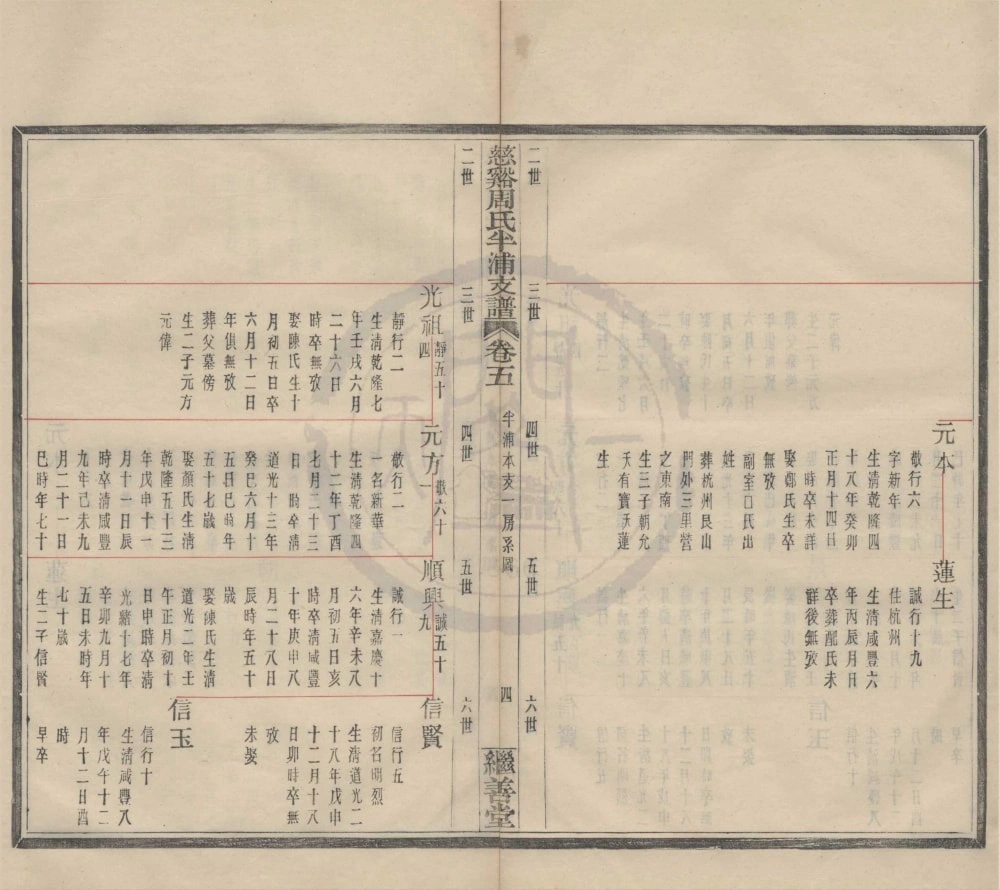 二世
三世
四世
五世
六世
元本
敬行六
字新年
生清乾隆四
十八年癸卯
正月十四日
時卒未詳
娶鄭氏生卒
無攷
副室口氏出
姓
葬杭州艮山
門外三里營
之東南
生三子朝允
夭有寶夭蓮
生
蓮生
誠行十九
住杭州
生清咸豐六
年丙辰月日
卒葬配氏未
詳後無攷
慈谿周氏半浦支譜
卷五
半浦本支一房系圖
四
繼善堂
二世
三世
四世
五世
六世
光祖
靜五十
四
靜行二
生清乾隆七
年壬戌六月
二十六日
時卒無攷
娶陳氏生十
月初五日卒
六月十二日
年俱無攷
葬父墓傍
生二子元方
元偉
元方
敬六十
一
敬行二
一名新華
生清乾隆四
十二年丁酉
七月二十三
日時卒清
道光十三年
癸巳六月十
五日巳時年
五十七歲
娶顏氏生清
乾隆五十三
年戊申十一
月十一日辰
時卒清咸豐
九年己未九
月二十一日
巳時年七十
順興
誠五十
九
誠行一
生清嘉慶十
六年辛未八
月初五日亥
時卒清咸豐
十年庚申八
月二十八日
辰時年五十
歲
娶陳氏生清
道光二年壬
午正月初十
日申時卒清
光緒十七年
辛卯九月十
五日未時年
七十歲
生二子信賢
信賢
信行五
初名明烈
生清道光二
十八年戊申
十二月十八
日卯時卒無
攷
未娶
信玉
信行十
生清咸豐八
年戊午十二
月十二日酉
時
早卒